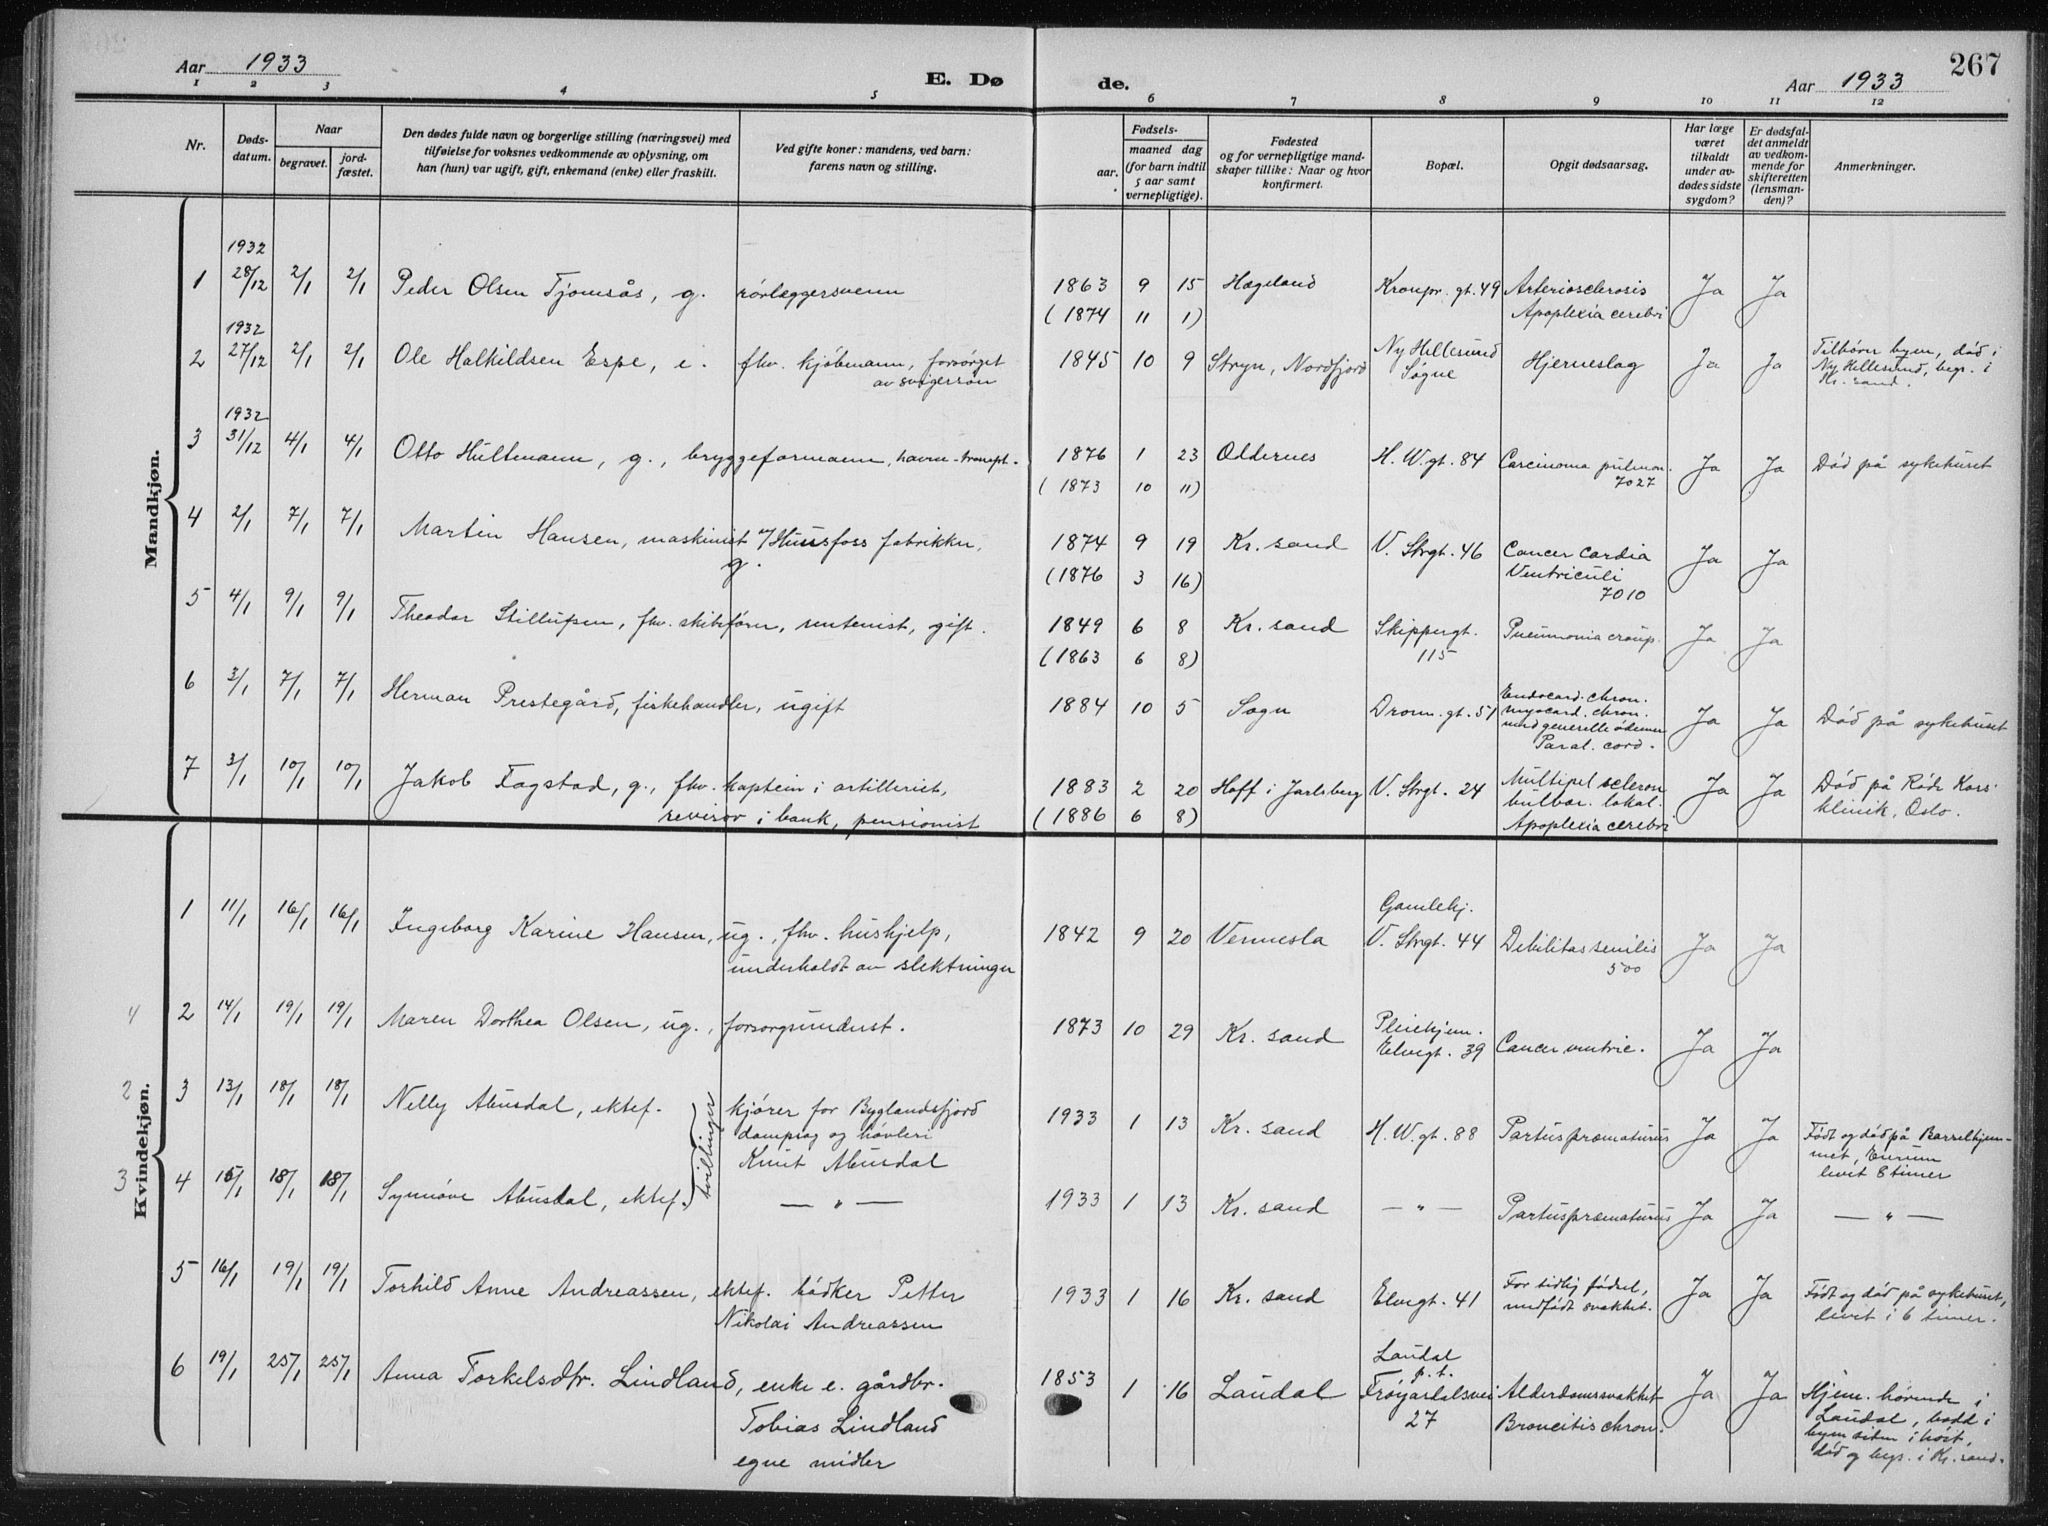 267
Aar 1933
E. Dø
de.
Aar 1933
1 2 3 4 5 6 7 8 9 10 11 12
Nr.
Døds-
datum.
Naar
begravet.
jord-
fæstet.
Den dødes fulde navn og borgerlige stilling (næringsvei) med
tilføielse for voksnes vedkommende av oplysning, om
han (hun) var ugift, gift, enkemand (enke) eller fraskilt.
Ved gifte koner: mandens, ved barn:
farens navn og stilling.
Fødsels-
aar.
maaned dag
(for barn indtil
5 aar samt
vernepligtige).
Fødested
og for vernepligtige mand-
skaper tillike: Naar og hvor
konfirmert.
Bopæl.
Opgit dødsaarsag.
Har læge
været
tilkaldt
under av-
dødes sidste
sygdom?
Er dødsfal-
det anmeldt
av vedkom-
mende for
skifteretten
(lensman-
den)?
Anmerkninger.
Mandkjøn.
1932
1 28/12 2/1 2/1 Peder Olsen Tjomsås, g. rørlæggersvenn 1863 9 15 Hægeland Kronpr. gt. 49 Arteriosclerosis Ja Ja
(1874 11 1) Apoplexia cerebri
1932
2 27/12 2/1 2/1 Ole Halkildsen Espe, e. fhv. kjøbmann, forsørget 1845 10 9 Stryn, Nordfjord Ny Hellesund Hjerneslag Ja Ja Tilhører byen, död i
av svigersøn Søgne Ny Hellesund, begr. i
Kr. sand.
1932
3 31/12 4/1 4/1 Otto Hultmann, g., bryggeformann, havne-transpt. 1876 1 23 Oddernes H. W. gt. 84 Carcinoma pulmon. Ja Ja Död på sykehuset
(1873 10 11) 7027
4 2/1 7/1 7/1 Martin Hansen, maskinist v/Hunsfoss fabrikker, 1874 9 19 Kr. sand V. Strgt. 46 Cancer cardia Ja Ja
g. (1876 3 16) Ventriculi
7010
5 4/1 9/1 9/1 Theodor Stillufsen, fhv. skibsfører, rentenist, gift. 1849 6 8 Kr. sand Skippergt. Pneumonia croup. Ja Ja
(1863 6 8) 115
6 3/1 7/1 7/1 Herman Prestegård, fiskehandler, ugift 1884 10 5 Sogn Dronn. gt. 51 Endocard. chron. Ja Ja Död på sykehuset
myocard. chron.
med generelle ödemer
Paral. cord.
7 3/1 10/1 10/1 Jakob Fagstad, g., fhv. kaptein i artilleriet, 1883 2 20 Hoff i Jarlsberg V. Strgt. 24 Multipel scleron Ja Ja Död på Röde Kors'
revisor i bank, pensionist (1886 6 8) bulbar. lokal. klinik, Oslo.
Apoplexia cerebri
Kvindekjøn.
1 11/1 16/1 16/1 Ingeborg Karine Hansen, ug., fhv. hushjelp, 1842 9 20 Vennesla Gamlehj. Debilitas senilis Ja Ja
underholdt av slektninger V. Strgt. 44 500
4 2 14/1 19/1 19/1 Maren Dorthea Olsen, ug., forsorgsunderst. 1873 10 29 Kr. sand Pleiehjem. Cancer ventric. Ja Ja
Elvegt. 39
2 3 13/1 18/1 18/1 Nelly Abusdal, ektef. tvillinger kjører for Byglandsfjord 1933 1 13 Kr. sand H. W. gt. 88 Partus præmaturus Ja Ja Født og död på Barselhjem-
dampsag og høvleri met,
Knut Abusdal levet 8 timer
3 4 15/1 18/1 18/1 Synnöve Abusdal, ektef. — " — 1933 1 13 Kr. sand — " — Partus præmaturus Ja Ja — " —
5 16/1 19/1 19/1 Torhild Anne Andreassen, ektef. bödker Petter 1933 1 16 Kr. sand Elvegt. 41 For tidlig födsel, Ja Ja Födt og död på sykehuset,
Nikolai Andreassen medfödt svakhet. levet i 6 timer.
6 19/1 25/1 25/1 Anna Torkelsdtr. Lindland, enke e. gårdbr. 1853 1 16 Laudal Laudal Alderdomssvakhet Ja Ja Hjem. hörende i
Tobias Lindland p.t. Broncitis chron. Laudal, bodd i
egne midler Fröyardalsvei byen siden i höst,
27 död og begr. i Kr. sand.